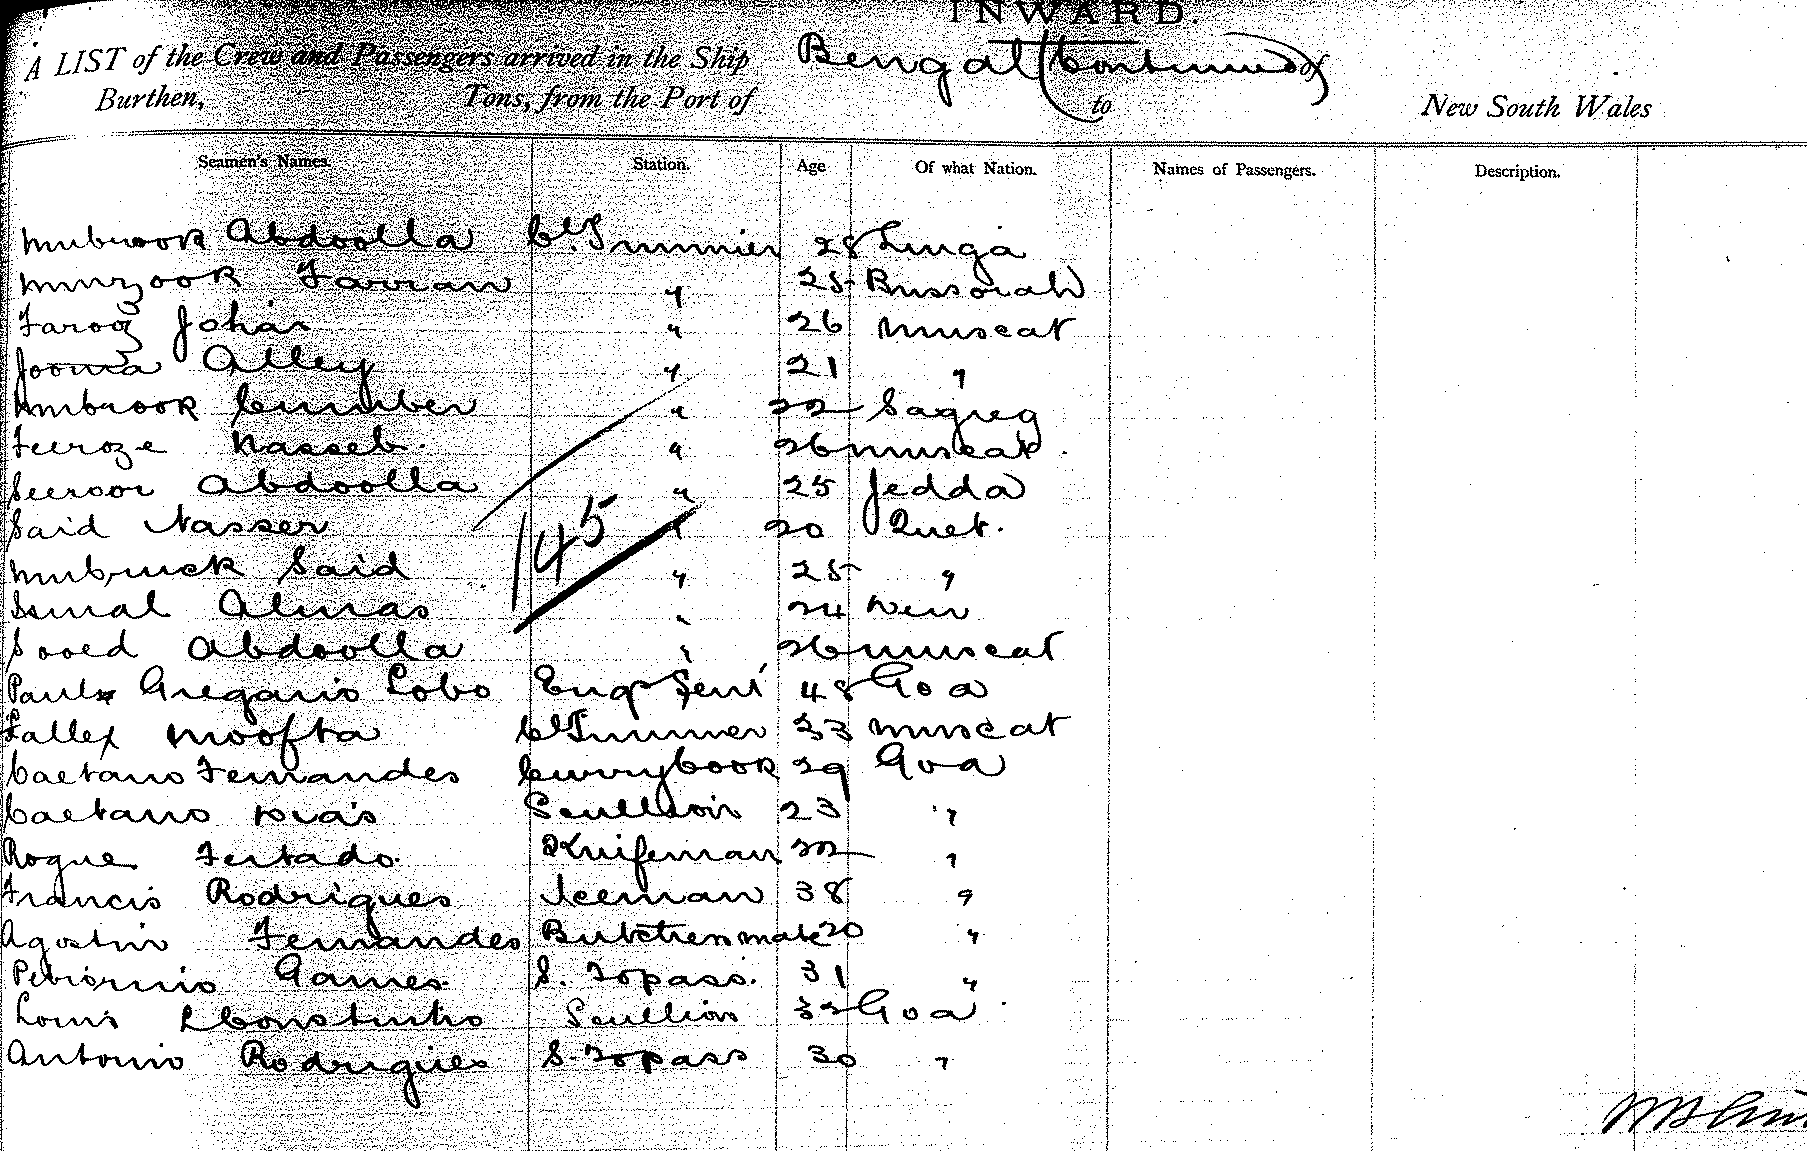 INWARD.
A LIST of the Crew and Passengers arrived in the Ship Bengal (Continued) of
Burthen, Tons, from the Port of to New South Wales
Seamen's Names. Station. Age Of what Nation. Names of Passengers. Description.
Mubrook Abdoolla Cl. Trimmer 28 Linga
Murzook Farran " 25 Bussorah
Farog Johar " 26 Muscat
Jooma Alley " 21 "
Mubrook Cumber " 22
Feeroze Nasseb. " 26 Muscat.
Seeroor Abdoolla " 25 Jedda
Said Nasser " 20
Mubruck Said " 25 "
Almas " 24
Sooed Abdoolla " 26 Muscat
145
Paulx Gregario Lobo 48 Goa
Moofta Cl Trimmer 33 Muscat
Caetano Fernandes Currycook 29 Goa
Caetano Dias Scullion 23 "
Roque Furtado. Knifeman 22 "
Francis Rodrigues Iceman 38 "
Agostin Fernandes Butchers mate 20 "
Games. S. Topass. 31 "
Louis Scullion 32 Goa
Antonio Rodrigues S. Topass 30 "